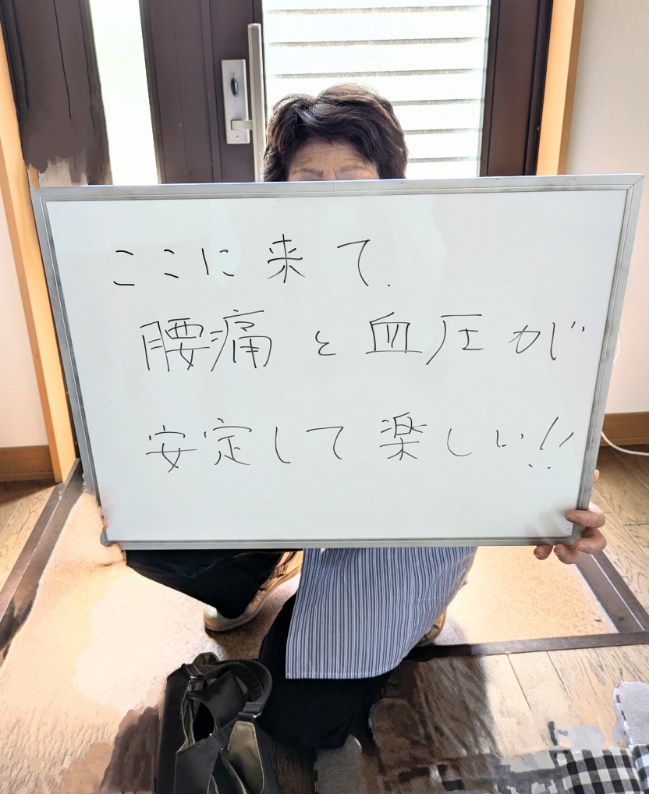 ここに来て.
腰痛と血圧が
安定して楽しい!!